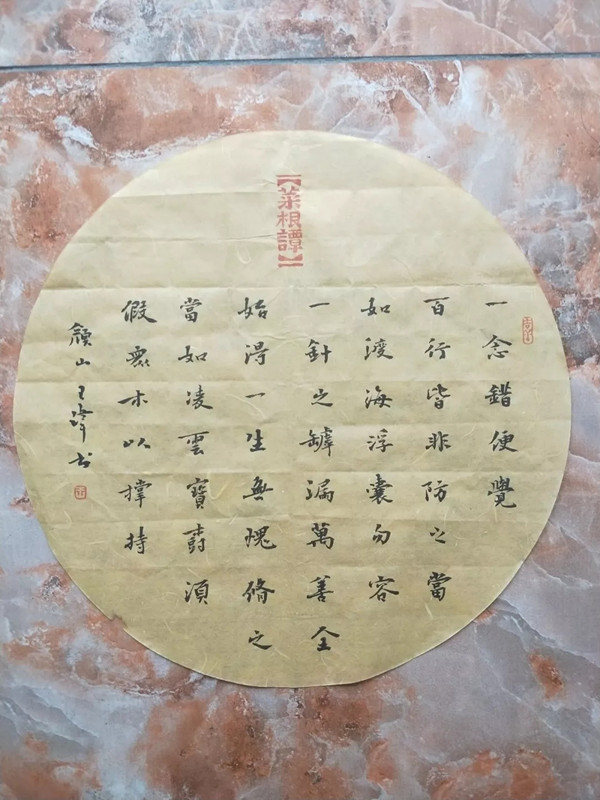 【菜根譚】
一念錯便覺
百行皆非防之當
如渡海浮囊勿容
一針之罅漏萬善全
始得一生無愧脩之
當如凌雲寶樹須
假眾木以撐持
山王峰书